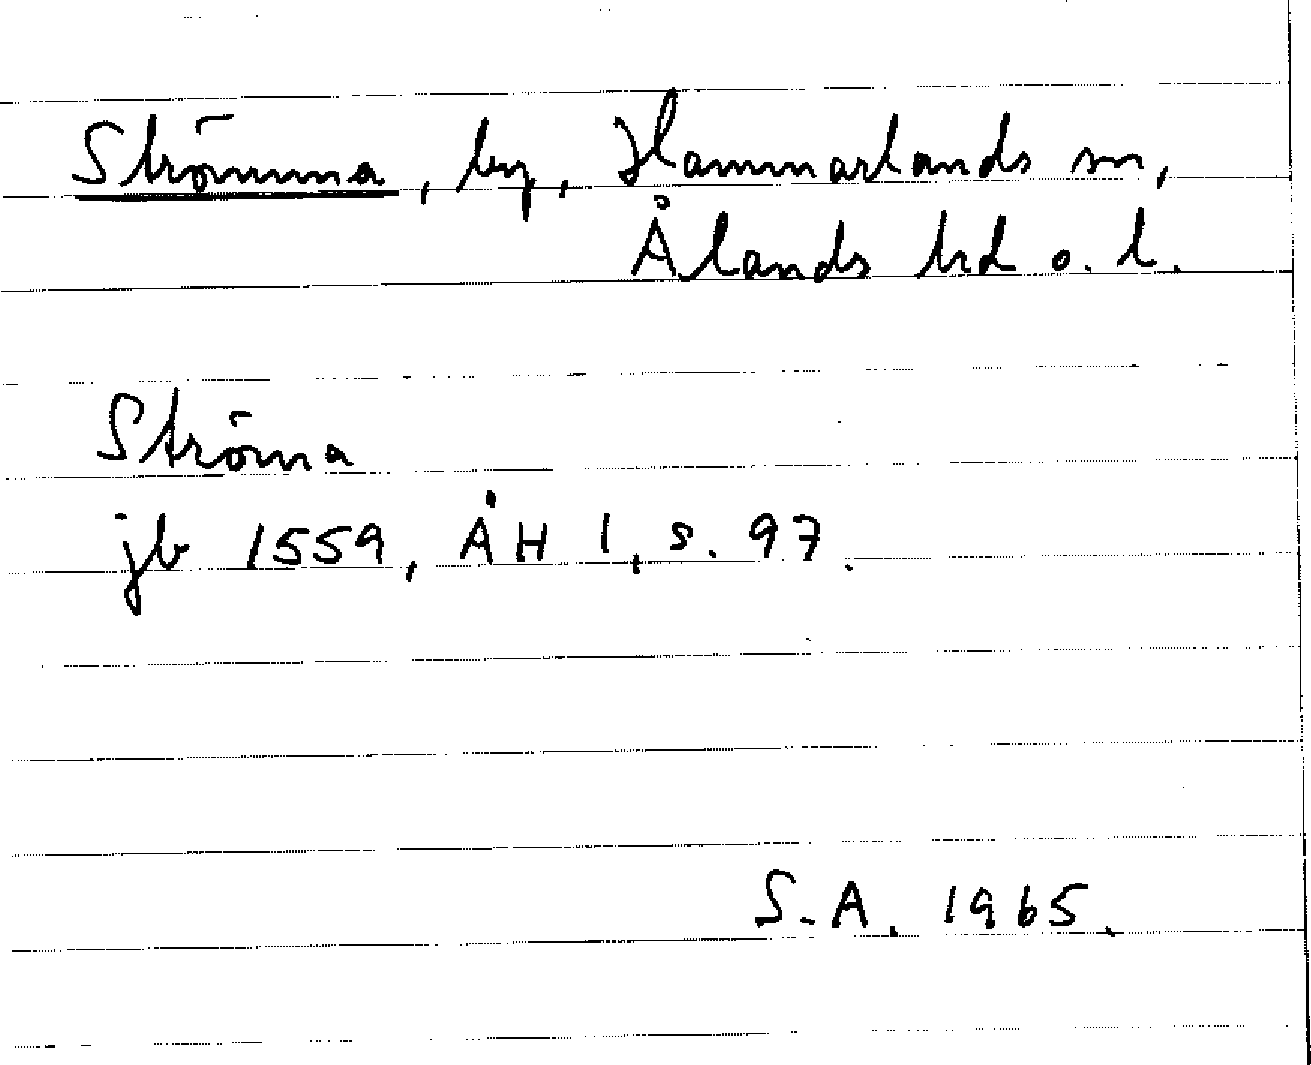 Strömma, by, Hammarlands sn,
Ålands hd o. l.
Ströma
jb 1559, ÅH 1, s. 97.
S.A. 1965.